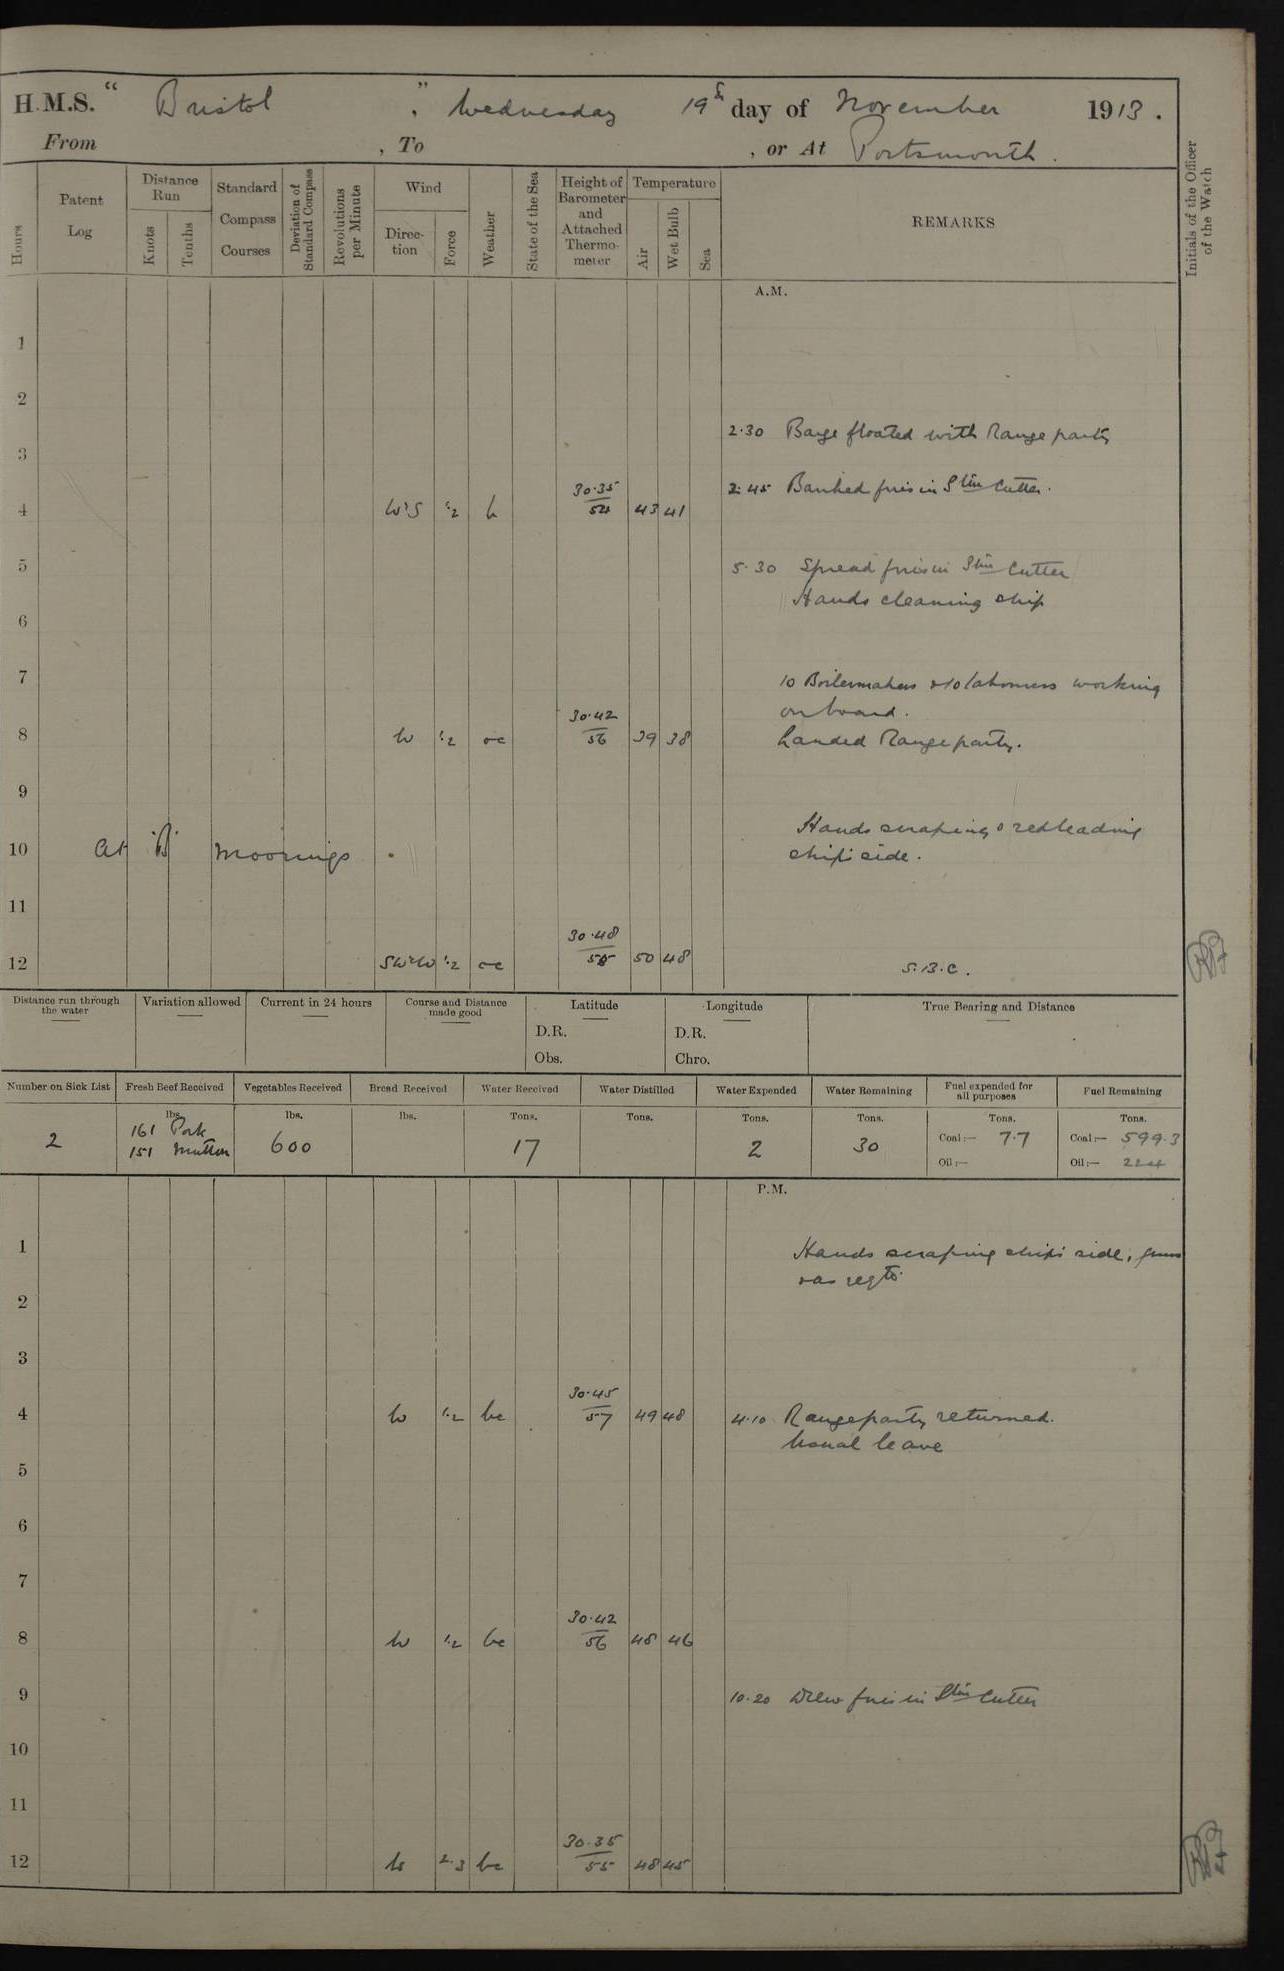 H.M.S. "Bristol," Wednesday 19th day of November 1913.
From , To , or At Portsmouth.
Hours
Patent Log
Distance Run
Knots
Tenths
Standard Compass Courses
Deviation of Standard Compass
Revolutions per Minute
Wind
Direction
Force
Weather
State of the Sea
Height of Barometer and Attached Thermometer
Temperature
Air
Wet Bulb
Sea
REMARKS
Initials of the Officer of the Watch
A.M.
1
2
2.30 Barge floated with Range party
3
2.45 Banked fires in Stm Cutter.
4 W'S 1.2 30.35 54 43 41
5 5.30 Spread fires in Stm Cutter
Hands cleaning ship
6
7 10 Boilermakers & 10 labourers working
on board.
8 W 1.2 oc 30.42 56 39 38 Landed Range party.
9
Hands scraping & redleading
10 At 'B' Moorings. ship's side.
11
12 SW'W 1.2 oc 30.48 55 50 48 S.B.C.
Distance run through the water
Variation allowed
Current in 24 hours
Course and Distance made good
Latitude
D.R.
Obs.
Longitude
D.R.
Chro.
True Bearing and Distance
Number on Sick List
Fresh Beef Received
Vegetables Received
Bread Received
Water Received
Water Distilled
Water Expended
Water Remaining
Fuel expended for all purposes
Fuel Remaining
lbs. lbs. lbs. Tons. Tons. Tons. Tons. Tons. Tons.
2
161 Pork
151 Mutton
600
17
2
30
Coal:— 7.7
Oil:—
Coal:— 599.3
Oil:— 224
P.M.
1 Hands scraping ship's side,
& as reqte
2
3
4 W 1.2 bc 30.45 57 49 48 4.10 Range party returned.
Usual leave
5
6
7
8 W 1.2 bc 30.42 56 48 46
9 10.20 Drew fires in Stm Cutter
10
11
12 W 2.3 bc 30.35 55 48 45